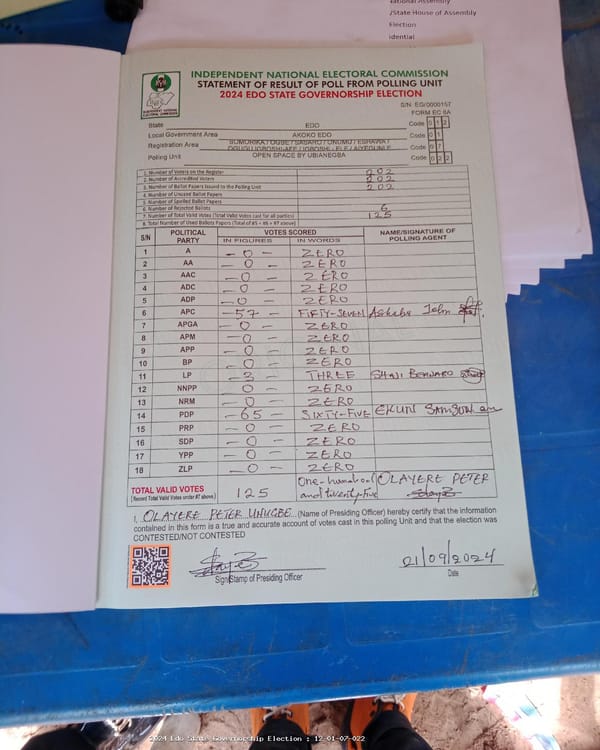 National Assembly
/State House of Assembly
Election
idential
INDEPENDENT NATIONAL ELECTORAL COMMISSION
STATEMENT OF RESULT OF POLL FROM POLLING UNIT
2024 EDO STATE GOVERNORSHIP ELECTION
S/N EG/0000157
FORM EC 8A
State EDO Code 0 1 2
Local Government Area AKOKO EDO Code 0 1
Registration Area SOMORIKA / OGBE / SASARO / ONUMU / ESHAWA / OGUGU / IGBOSHI-AFE / IGBOSHI - ELE / AIYEGUNLE Code 0 7
Polling Unit OPEN SPACE BY UBIANEGBA Code 0 2 2
1. Number of Voters on the Register 202
2. Number of Accredited Voters 202
3. Number of Ballot Papers Issued to the Polling Unit 202
4. Number of Unused Ballot Papers
5. Number of Spoiled Ballot Papers
6. Number of Rejected Ballots 6
7. Number of Total Valid Votes (Total Valid Votes cast for all parties) 125
8. Total Number of Used Ballots Papers (Total of #5 + #6 + #7 above)
S/N POLITICAL PARTY VOTES SCORED NAME/SIGNATURE OF POLLING AGENT
IN FIGURES IN WORDS
1 A - 0 - ZERO
2 AA - 0 - ZERO
3 AAC - 0 - ZERO
4 ADC - 0 - ZERO
5 ADP - 0 - ZERO
6 APC - 57 - FIFTY-SEVEN John
7 APGA - 0 - ZERO
8 APM - 0 - ZERO
9 APP - 0 - ZERO
10 BP - 0 - ZERO
11 LP - 3 - THREE
12 NNPP - 0 - ZERO
13 NRM - 0 - ZERO
14 PDP - 65 - SIXTY-FIVE EKUN SAMSON
15 PRP - 0 - ZERO
16 SDP - 0 - ZERO
17 YPP - 0 - ZERO
18 ZLP - 0 - ZERO
TOTAL VALID VOTES 125 One-hundred and twentyfive OLAYERE PETER
(Record Total Valid Votes under #7 above)
I, OLAYERE PETER UNUGBE (Name of Presiding Officer) hereby certify that the information
contained in this form is a true and accurate account of votes cast in this polling Unit and that the election was
CONTESTED/NOT CONTESTED
21/09/2024
Sign/Stamp of Presiding Officer Date
2024 Edo State Governorship Election : 12-01-07-022